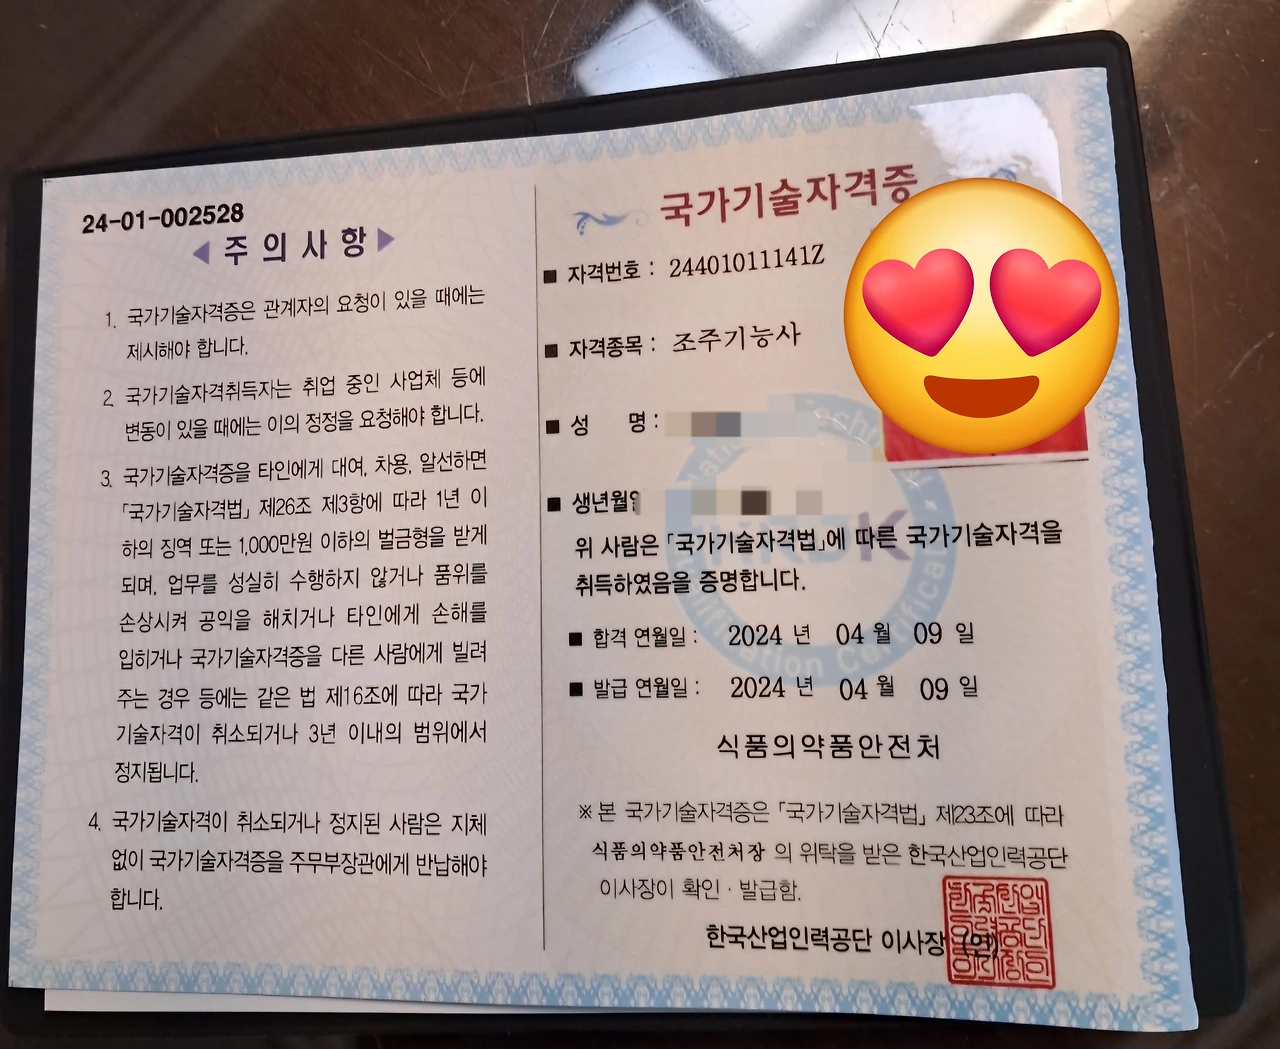 24-01-002528
◀ 주 의 사 항 ▶
1. 국가기술자격증은 관계자의 요청이 있을 때에는
제시해야 합니다.
2. 국가기술자격취득자는 취업 중인 사업체 등에
변동이 있을 때에는 이의 정정을 요청해야 합니다.
3. 국가기술자격증을 타인에게 대여, 차용, 알선하면
「국가기술자격법」 제26조 제3항에 따라 1년 이
하의 징역 또는 1,000만원 이하의 벌금형을 받게
되며, 업무를 성실히 수행하지 않거나 품위를
손상시켜 공익을 해치거나 타인에게 손해를
입히거나 국가기술자격증을 다른 사람에게 빌려
주는 경우 등에는 같은 법 제16조에 따라 국가
기술자격이 취소되거나 3년 이내의 범위에서
정지됩니다.
4. 국가기술자격이 취소되거나 정지된 사람은 지체
없이 국가기술자격증을 주무부장관에게 반납해야
합니다.
국가기술자격증
■ 자격번호 : 24401011141Z
■ 자격종목 : 조주기능사
■ 성 명 :
■ 생년월일
위 사람은 「국가기술자격법」에 따른 국가기술자격을
취득하였음을 증명합니다.
■ 합격 연월일 : 2024 년 04 월 09 일
■ 발급 연월일 : 2024 년 04 월 09 일
식품의약품안전처
※ 본 국가기술자격증은 「국가기술자격법」 제23조에 따라
식품의약품안전처장 의 위탁을 받은 한국산업인력공단
이사장이 확인 · 발급함.
한국산업인력공단 이사장 (인)